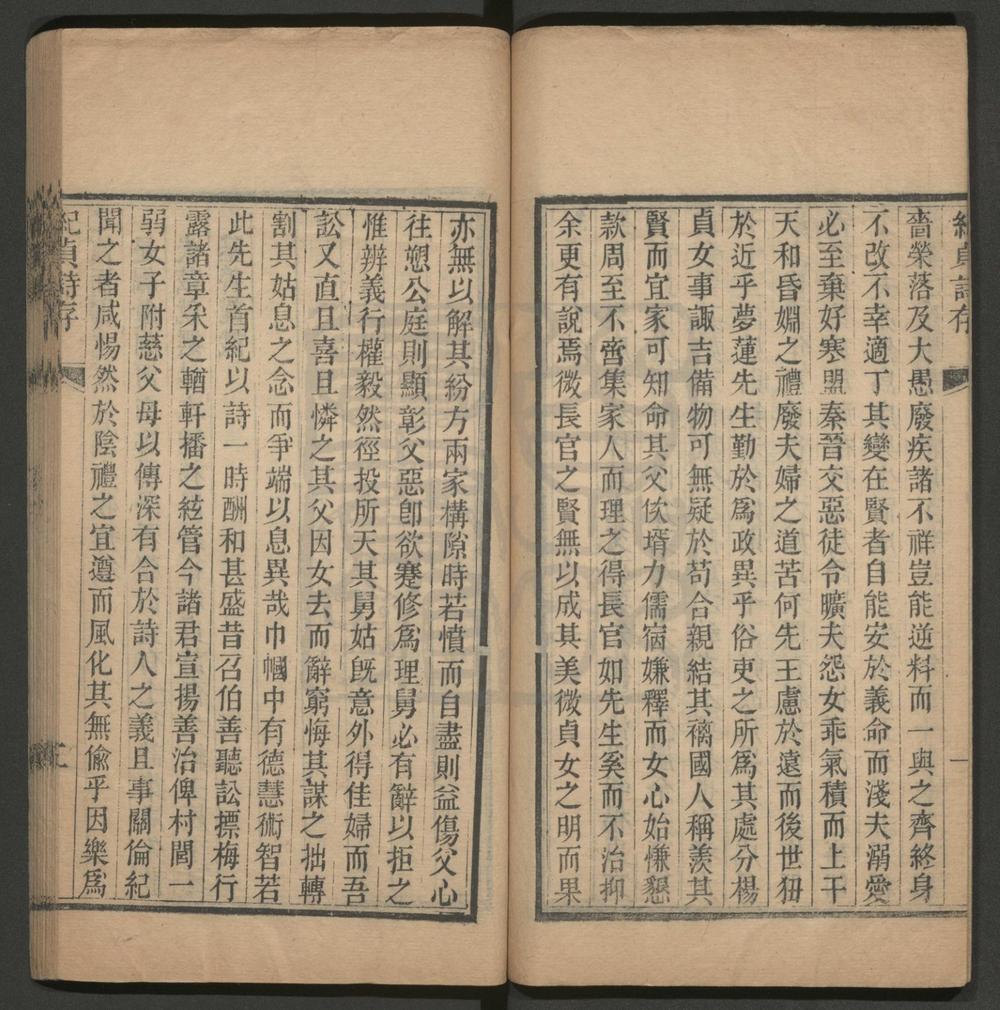 紀貞詩存
一
嗇榮落及大愚廢疾諸不祥豈能逆料而一與之齊終身
不改不幸適丁其變在賢者自能安於義命而淺夫溺愛
必至棄好寒盟秦晉交惡徒令曠夫怨女乖氣積而上干
天和昏姻之禮廢夫婦之道苦何先王慮於遠而後世狃
於近乎夢蓮先生勤於爲政異乎俗吏之所爲其處分楊
貞女事諏吉備物可無疑於苟合親結其褵國人稱羨其
賢而宜家可知命其父佽壻力儒宿嫌釋而女心始慊懇
款周至不啻集家人而理之得長官如先生奚而不治抑
余更有說焉微長官之賢無以成其美微貞女之明而果
亦無以解其紛方兩家構隙時若憤而自盡則益傷父心
往愬公庭則顯彰父惡卽欲蹇修爲理舅必有辭以拒之
惟辨義行權毅然徑投所天其舅姑旣意外得佳婦而吾
訟又直且喜且憐之其父因女去而辭窮悔其謀之拙轉
割其姑息之念而爭端以息異哉巾幗中有德慧術智若
此先生首紀以詩一時酬和甚盛昔召伯善聽訟摽梅行
露諸章采之輶軒播之絃管今諸君宣揚善治俾村閭一
弱女子附慈父母以傳深有合於詩人之義且事關倫紀
聞之者咸惕然於陰禮之宜遵而風化其無偸乎因樂爲
紀貞詩存